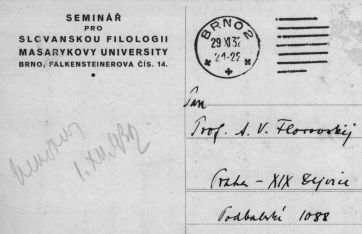 SEMINÁŘ
PRO
SLOVANSKOU FILOLOGII
MASARYKOVY UNIVERSITY
BRNO, FALKENSTEINEROVA ČÍS. 14.
BRNO 2
29 XI 32
21-22
Pan
Prof. A. V. Florovskij
Praha - XIX Dejvice
Podbabská 1088
1.XII.1932